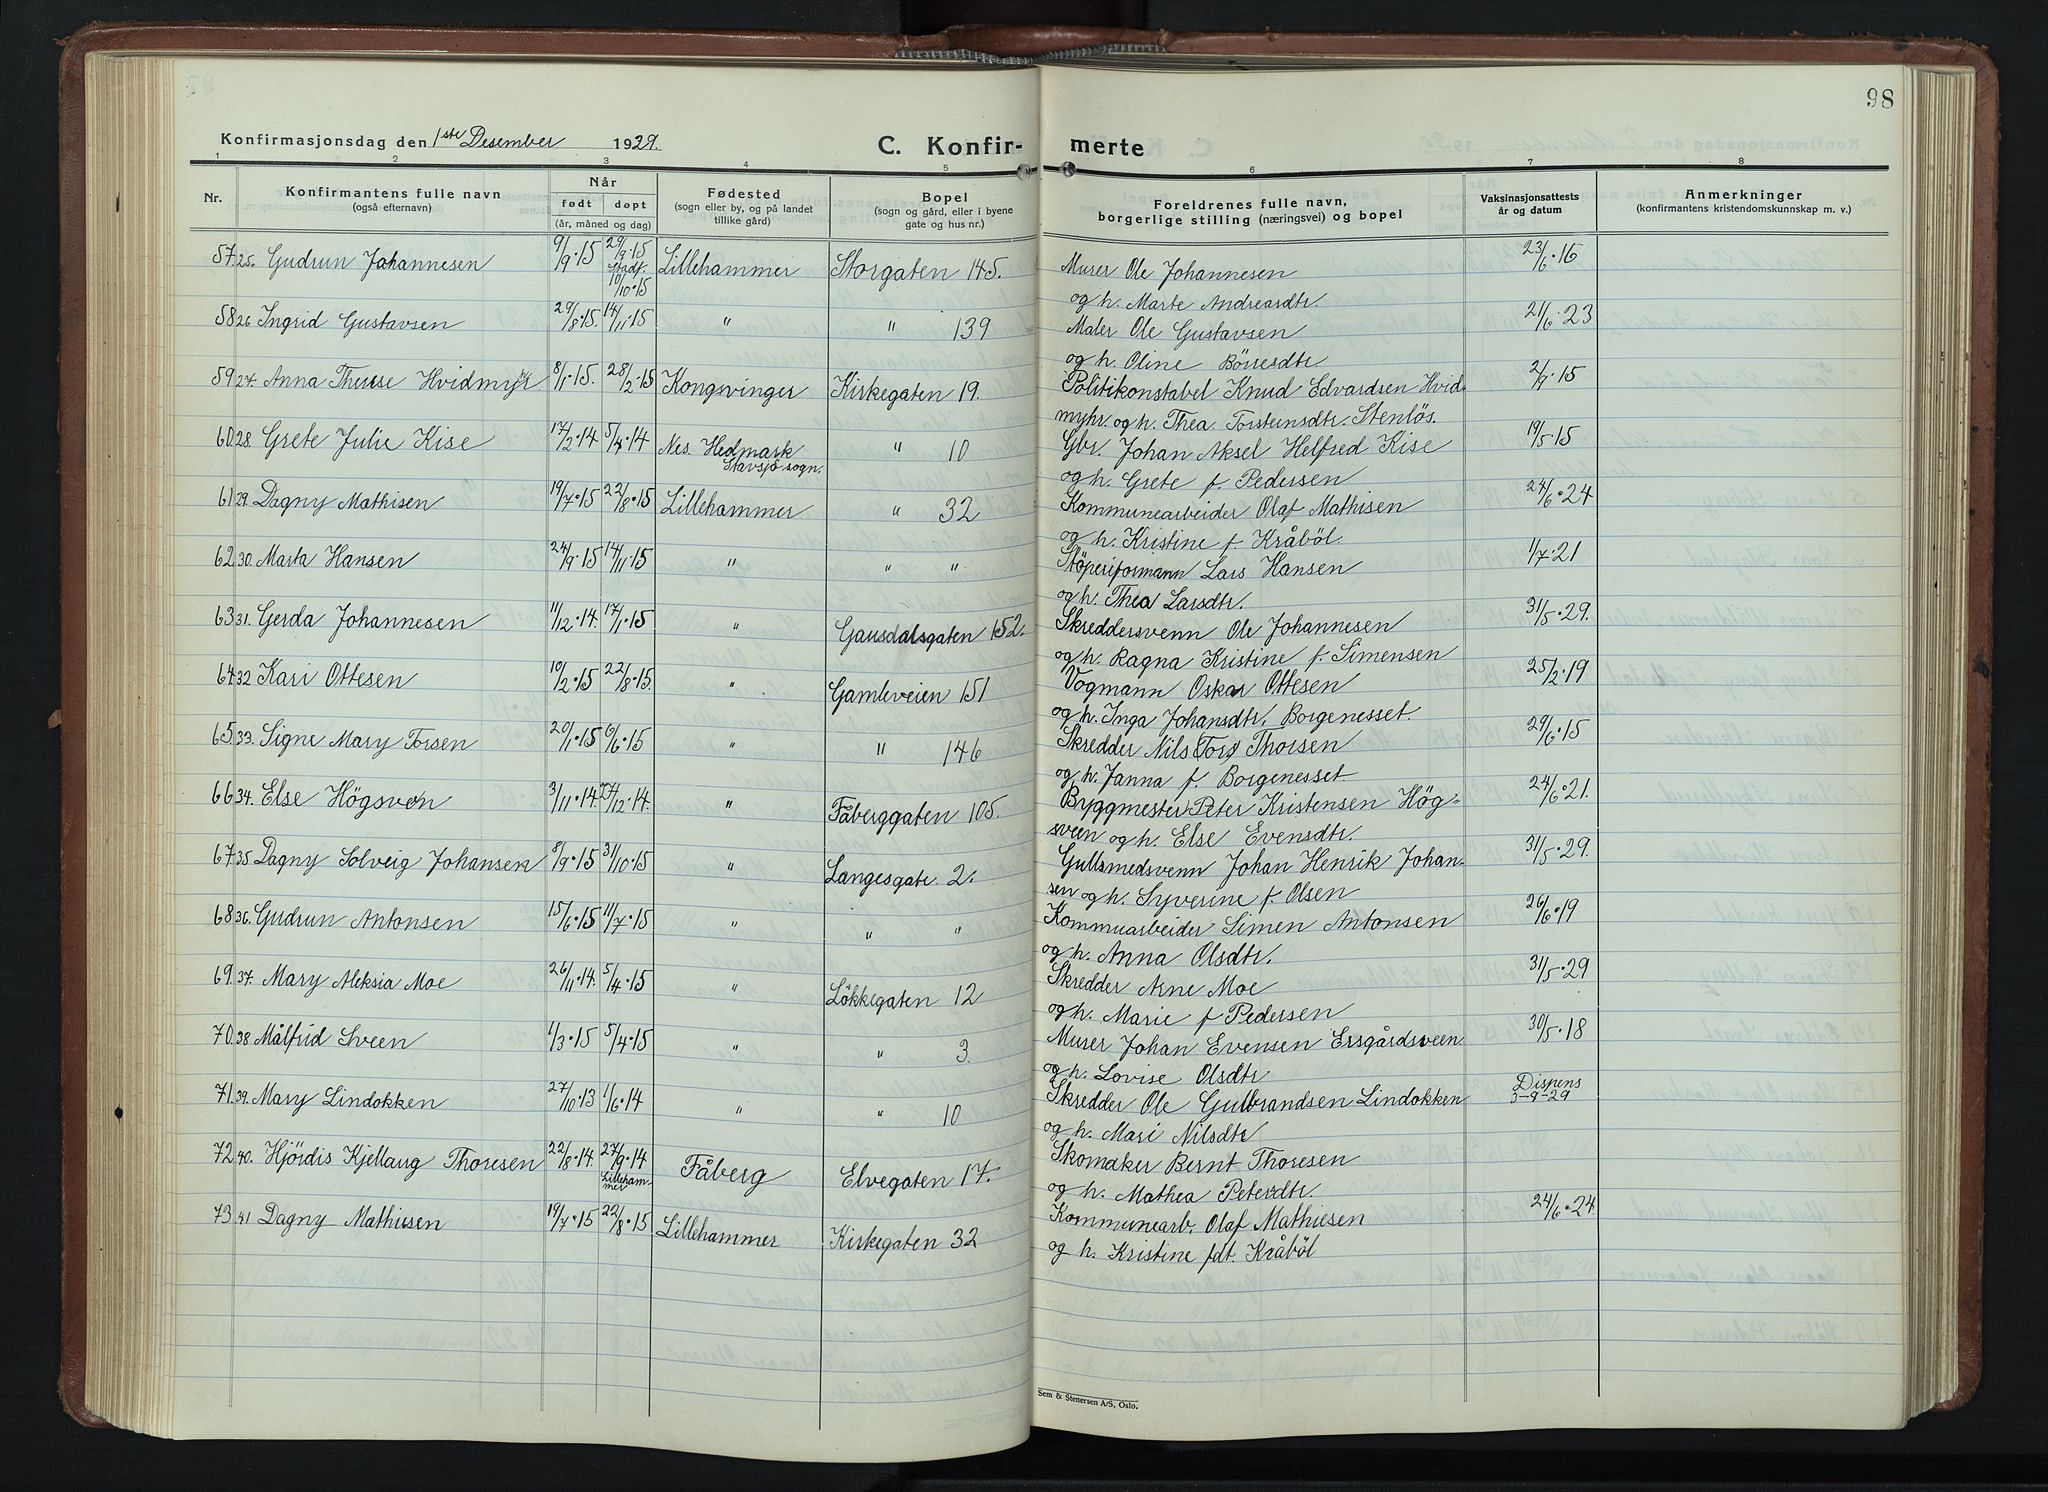 98
Konfirmasjonsdag den 1ste Desember 1929.
C. Konfir- merte
1 2 3 4 5 6 7 8
Nr.
Konfirmantens fulle navn
(også efternavn)
Når
født døpt
(år, måned og dag)
Fødested
(sogn eller by, og på landet
tillike gård)
Bopel
(sogn og gård, eller i byene
gate og hus nr.)
Foreldrenes fulle navn,
borgerlige stilling (næringsvei) og bopel
Vaksinasjonsattests
år og datum
Anmerkninger
(konfirmantens kristendomskunnskap m. v.)
57 25. Gudrun Johannesen 9/9·15 29/9·15 Stadf. 10/10·15 Lillehammer Storgaten 145. Murer Ole Johannesen 23/6·16
og h. Marte Andreasdtr.
58 26 Ingrid Gustavsen 29/8·15. 14/11·15 " " 139 Maler Ole Gustavsen 21/6·23
og h. Oline Börresdtr.
59 27. Anna Therese Hvidmyr 8/1·15. 28/2·15 Kongsvinger Kirkegaten 19. Politikonstabel Knud Edvardsen Hvid- 2/9·15
myhr. og h. Thea Torsteinsdtr. Stenlös.
60 28. Grete Julie Kise 17/2·14 5/4·14 Nes. Hedmark Stavsjö sogn. " 10 Gbr. Johan Aksel Helfred Kise 19/5·15
og h. Grete f. Pedersen
61 29. Dagny Mathisen 19/7·15 22/8·15 Lillehammer " 32 Kommunearbeider Olaf Mathisen 24/6·24
og h. Kristine f. Kråböl.
62 30. Marta Hansen 24/9·15 14/11·15 " " " Stöperiformann Lars Hansen 1/7·21
og h. Thea Larsdtr.
63 31. Gerda Johannesen 11/12·14. 17/1·15 " Gausdalsgaten 152. Skreddersvenn Ole Johannesen 31/5·29.
og h. Ragna Kristine f. Simensen
64 32 Kari Ottesen 10/2·15 22/8·15. " Gamleveien 151 Vogmann Oskar Ottesen 25/2·19
og h. Inga Johansdtr. Borgenesset.
65. 33. Signe Mary Torsen 20/1·15 6/6·15 " " 146 Skredder Nils Tors Thorsen 29/6·15
og h. Janna f. Borgenesset.
66 34. Else Högsven 3/11·14 27/12·14. " Fåberggaten 105. Byggmester Peter Kristensen Hög- 24/6·21.
sveen og h. Else Evensdtr.
67 35 Dagny Solveig Johansen 8/9·15 31/10·15 " Langesgate 2. Gullsmedsvenn Johan Henrik Johan- 31/5·29.
sen og h. Syverine f. Olsen
68 36. Gudrun Antonsen 15/6·15 11/7·15 " " " Kommuarbeider Simen Antonsen 26/6·19
og h. Anna Olsdtr.
69. 37. Mary Aleksia Moe 26/11·14. 5/4·15 " Lökkegaten 12 Skredder Arne Moe 31/5·29
og h. Marie f Pedersen
70. 38 Målfrid Sveen 1/3·15 5/4·15 " " 3. Murer Johan Evensen Ersgårdsveen 30/5·18
og h. Lovise Olsdtr
71. 39. Mary Lindokken 27/10·13 1/6·14 " " 10 Skredder Ole Gulbrandsen Lindokken Dispens 3-9-29
og h. Mari Nilsdtr
72 40. Hjördis Kjellaug Thoresen 22/8·14. 27/9·14 Lilleham-mer Fåberg Elvegaten 17. Skomaker Bernt Thoresen
og h. Mathea Petersdtr.
73. 41 Dagny Mathiesen 19/7·15 22/8·15 Lillehammer Kirkegaten 32 Kommunearb. Olaf Mathiesen 24/6·24.
og h. Kristine fdt. Kråböl
Sem & Stenersen A/S, Oslo.